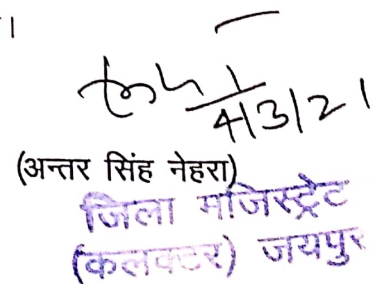 ।
4/3/21
(अन्तर सिंह नेहरा)
जिला मजिस्ट्रेट
(कलक्टर) जयपुर